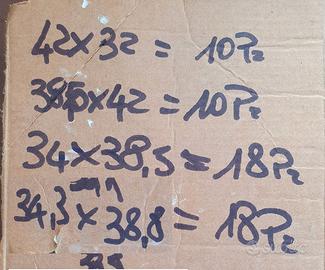 42x32 = 10Pz
38,5x42 = 10Pz
34x38,5 = 18Pz
34,3x38,8 = 18Pz